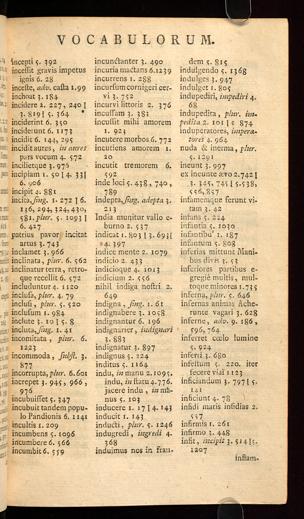 VOCABULORUM.
incepti 5. 392
incessit gravis impetus
ignis 6. 28
inceste, adv. casta 1.99
inchout 3. 184
incidere 1. 227, 240|
3. 819| 5. 364
inciderint 6. 350
inciderunt 6. 1173
incidit 6. 144, 295
incidit aures, in auret
pars vocum 4. 572
incilietque 3. 976
incipiam 1. 50| 4. 33|
6. 906
incipit 4. 881
incita, sing. 1. 272| 6.
136, 294, 324, 430,
581, plur. 5. 1093|
6. 427
incitus pavor incitat
artus 3. 743
inclamet 3. 966
inclinata, plur. 6. 562
inclinatur terra, retro-
que recellit 6. 572
includuntur 4. 1120
inclusa, plur. 4. 79
inclusi, plur. 5. 520
inclusum 1. 984
incolunt 1. 10| 5. 8
incolumis, sing. 1. 41
incomitata, plur. 6.
1223
incommoda, subst. 3.
877
incorrupta, plur. 6.601
increpet 3. 945, 966,
976
incubuisset 5. 347
incubuit tandem popu-
lo Pandionis 6. 1141
incultis 1. 209
incumbens 5. 1096
incumbere 6. 566
incumbit 6. 559
incunctanter 3. 490
incuria mactans 6.1239
incurrens 1. 288
incursum cornigeri cer-
vi 3. 752
incurvi littoris 2. 376
incussam 3. 381
incussit mihi amorem
1. 923
incutere morbos 6. 773
incutiens amorem 1.
20
incutit tremorem 6.
592
inde loci 5. 438, 740,
789
indepta, sing. adepta 3.
213
India munitur vallo e-
burno 2. 537
indicat 1. 803|3. 693|
4. 397
indice mente 2. 1079
indicio 2. 433
indicioque 4. 1013
indicium 2. 556
nihil indiga nostri 2.
649
indigna, sing. 1. 61
indignabere 3. 1058
indignantur 6. 196
indignatur, indignari
3. 883
indignatur 3. 897
indignus 5. 124
inditus 5. 1164
indu, in manu 2. 1095,
indu, in statu 4.776.
jacere indu, in ma-
nus 5. 103
inducere 1. 17| 4. 143
inducit 1. 143
inducti, plur. 5. 1246
indugredi, ingredi 4.
368
induimus nos in frau-
dem 5. 815
indulgendo 5. 1368
indulges 3. 947
indulget 1. 805
indupediri, impediri 4.
68
indupedita, plur. im-
pedita 2. 101| 1. 874
induperatores, impera-
tores 4. 962
nuda & inerma, plur.
5. 1291
inerunt 3. 997
ex ineunte ævo 2.742|
3. 325. 745| 5.538,
556, 857
infamemque ferunt vi-
tam 3. 42
infans 5. 224
infantia 5. 1030
infantibu' 1. 187
infantum 5. 808
inferias mittunt Mani-
bus divis 3. 53
inferiores partibus e-
gregiè multis, mul-
toque minores 1.735
inferna, plur. 6. 646
infernas animas Ache-
runte vagari 3. 628
inferne, adv. 9. 186,
596, 764
inferret cœlo lumine
5. 924
inferri 3. 680
infestum 5. 220. iter
fecere viai 1123
inficiandum 3. 797| 5.
141
inficiunt 4. 78
infidi maris insidias 2.
557
infirmis 1. 261
infirmo 3. 448
infit, incipit 3. 514|5.
1207
infiam.